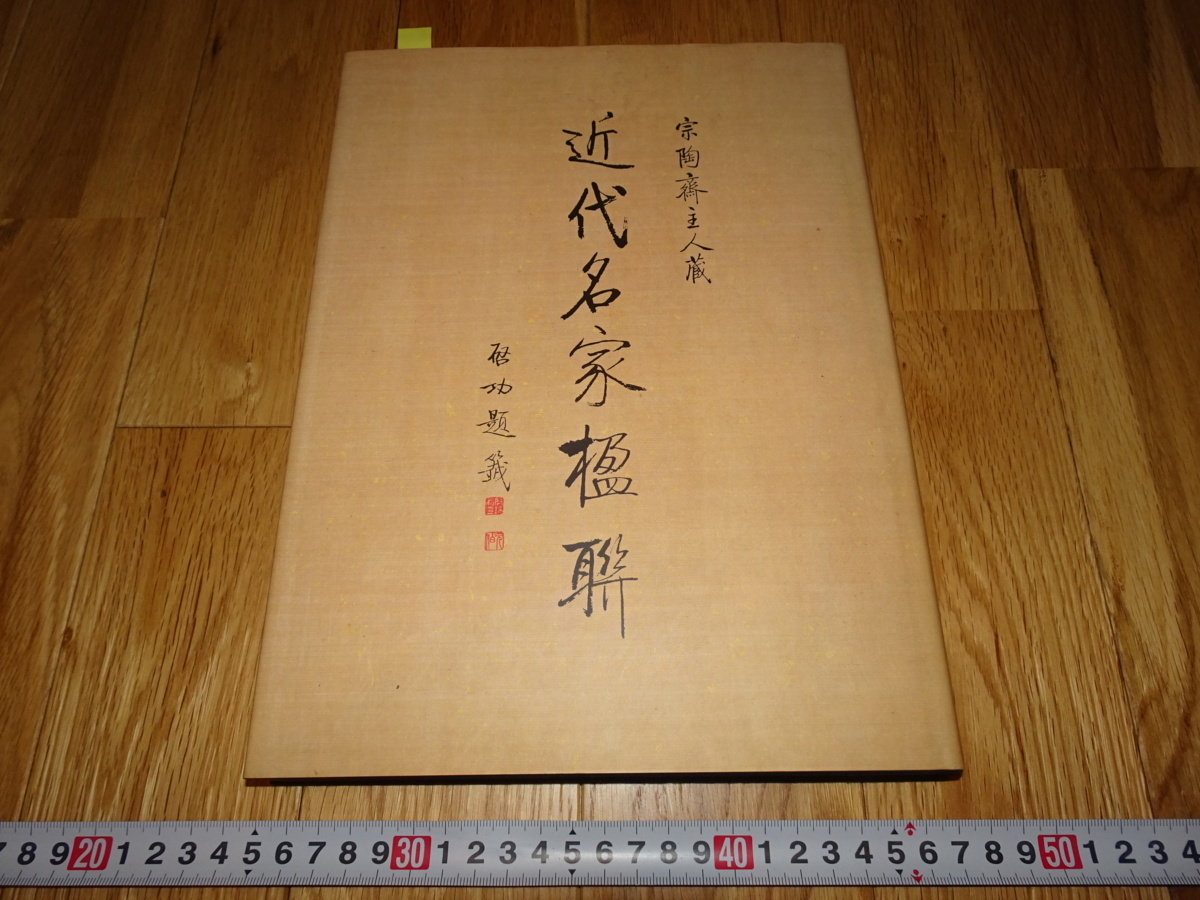 宗陶齋主人藏
近代名家楹聯
啓功題籤
7 8 9 20 1 2 3 4 5 6 7 8 9 30 1 2 3 4 5 6 7 8 9 40 1 2 3 4 5 6 7 8 9 50 1 2 3 4